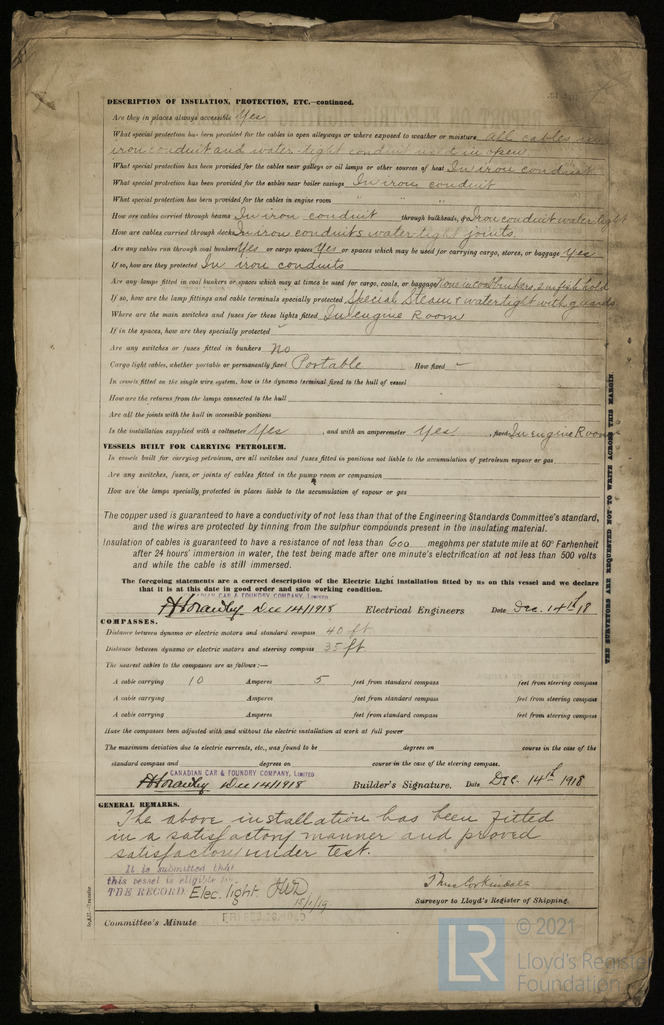 DESCRIPTION OF INSULATION, PROTECTION, ETC.—continued.
Are they in places always accessible Yes
What special protection has been provided for the cables in open alleyways or where exposed to weather or moisture all cables in
iron conduit and water-tight conduit in open
What special protection has been provided for the cables near galleys or oil lamps or other sources of heat In iron conduit
What special protection has been provided for the cables near boiler casings In iron conduit
What special protection has been provided for the cables in engine room " " "
How are cables carried through beams In iron conduit through bulkheads, &c. Iron conduit water-tight
How are cables carried through decks In iron conduits water-tight joints
Are any cables run through coal bunkers Yes or cargo spaces Yes or spaces which may be used for carrying cargo, stores, or baggage Yes
If so, how are they protected In iron conduits
Are any lamps fitted in coal bunkers or spaces which may at times be used for cargo, coals, or baggage None in coal bunkers, in fish hold
If so, how are the lamp fittings and cable terminals specially protected Special Steam & watertight with guards
Where are the main switches and fuses for these lights fitted In engine Room
If in the spaces, how are they specially protected –
Are any switches or fuses fitted in bunkers No
Cargo light cables, whether portable or permanently fixed Portable How fixed –
In vessels fitted on the single wire system, how is the dynamo terminal fixed to the hull of vessel
How are the returns from the lamps connected to the hull
Are all the joints with the hull in accessible positions
Is the installation supplied with a voltmeter Yes , and with an amperemeter Yes , fixed In engine Room
VESSELS BUILT FOR CARRYING PETROLEUM.
In vessels built for carrying petroleum, are all switches and fuses fitted in positions not liable to the accumulation of petroleum vapour or gas
Are any switches, fuses, or joints of cables fitted in the pump room or companion
How are the lamps specially protected in places liable to the accumulation of vapour or gas
The copper used is guaranteed to have a conductivity of not less than that of the Engineering Standards Committee's standard,
and the wires are protected by tinning from the sulphur compounds present in the insulating material.
Insulation of cables is guaranteed to have a resistance of not less than 600 megohms per statute mile at 60° Farhenheit
after 24 hours' immersion in water, the test being made after one minute's electrification at not less than 500 volts
and while the cable is still immersed.
The foregoing statements are a correct description of the Electric Light installation fitted by us on this vessel and we declare
that it is at this date in good order and safe working condition.
CANADIAN CAR & FOUNDRY COMPANY, LIMITED
Dec 14/1918 Electrical Engineers Date Dec. 14th 18
COMPASSES.
Distance between dynamo or electric motors and standard compass 40 ft
Distance between dynamo or electric motors and steering compass 35 ft
The nearest cables to the compasses are as follows:—
A cable carrying 10 Amperes 5 feet from standard compass feet from steering compass
A cable carrying Amperes feet from standard compass feet from steering compass
A cable carrying Amperes feet from standard compass feet from steering compass
Have the compasses been adjusted with and without the electric installation at work at full power
The maximum deviation due to electric currents, etc., was found to be degrees on course in the case of the
standard compass and degrees on course in the case of the steering compass.
CANADIAN CAR & FOUNDRY COMPANY, LIMITED
Dec 14/1918 Builder's Signature. Date Dec. 14th 1918
GENERAL REMARKS.
The above installation has been fitted
in a satisfactory manner and proved
satisfactory under test.
It is submitted that
this vessel is eligible for
THE RECORD. Elec. light. 15/1/19
Surveyor to Lloyd's Register of Shipping.
Committee's Minute
THE SURVEYORS ARE REQUESTED NOT TO WRITE ACROSS THIS MARGIN.
LR
© 2021
Lloyd's Register
Foundation